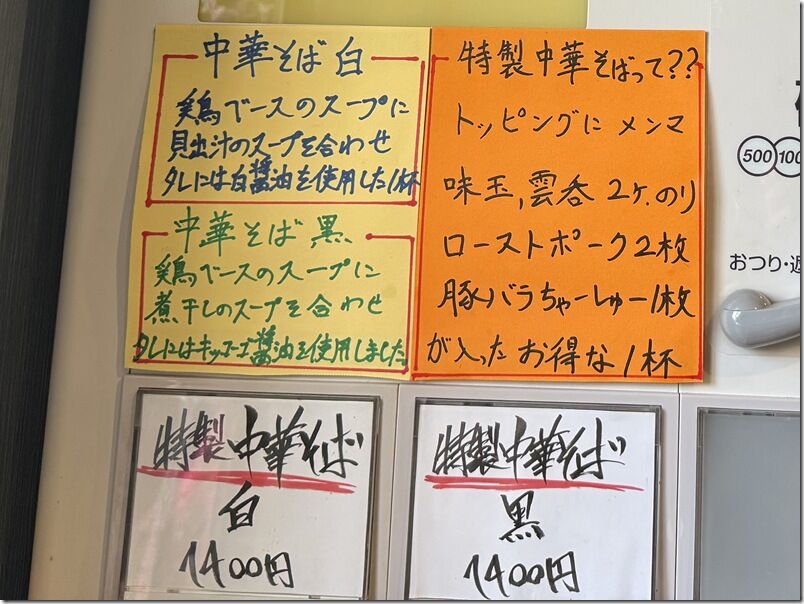 中華そば 白
鶏ベースのスープに
貝出汁のスープを合わせ
タレには白醤油を使用した1杯
中華そば 黒
鶏ベースのスープに
煮干しのスープを合わせ
タレにはキッコーゴ醤油を使用しました
特製中華そばって??
トッピングに メンマ
味玉,雲呑 2ヶ.のり
ローストポーク2枚
豚バラちゃーしゅー1枚
が入った お得な1杯
500
おつり・返
特製中華そば
白
1400円
特製中華そば
黒
1400円